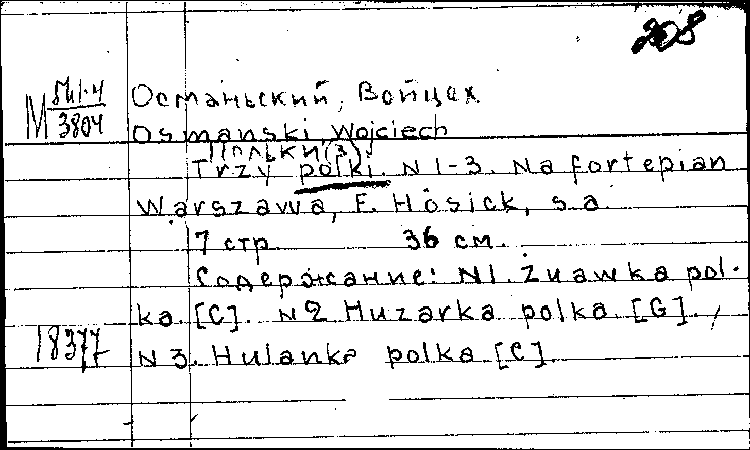 208
М Бul-4
3804
Османьский, Войцех
Osmanski Wojciech
Польки (3)
Trzy polki. N 1-3. Na fortepian
Warszawa, F. Hösick, s.a.
7 стр. 36 см.
Содержание: N1. Żuawka pol-
ka. [C]. N2 Huzarka polka [G].,
18377
N3. Hulanka polka [C]